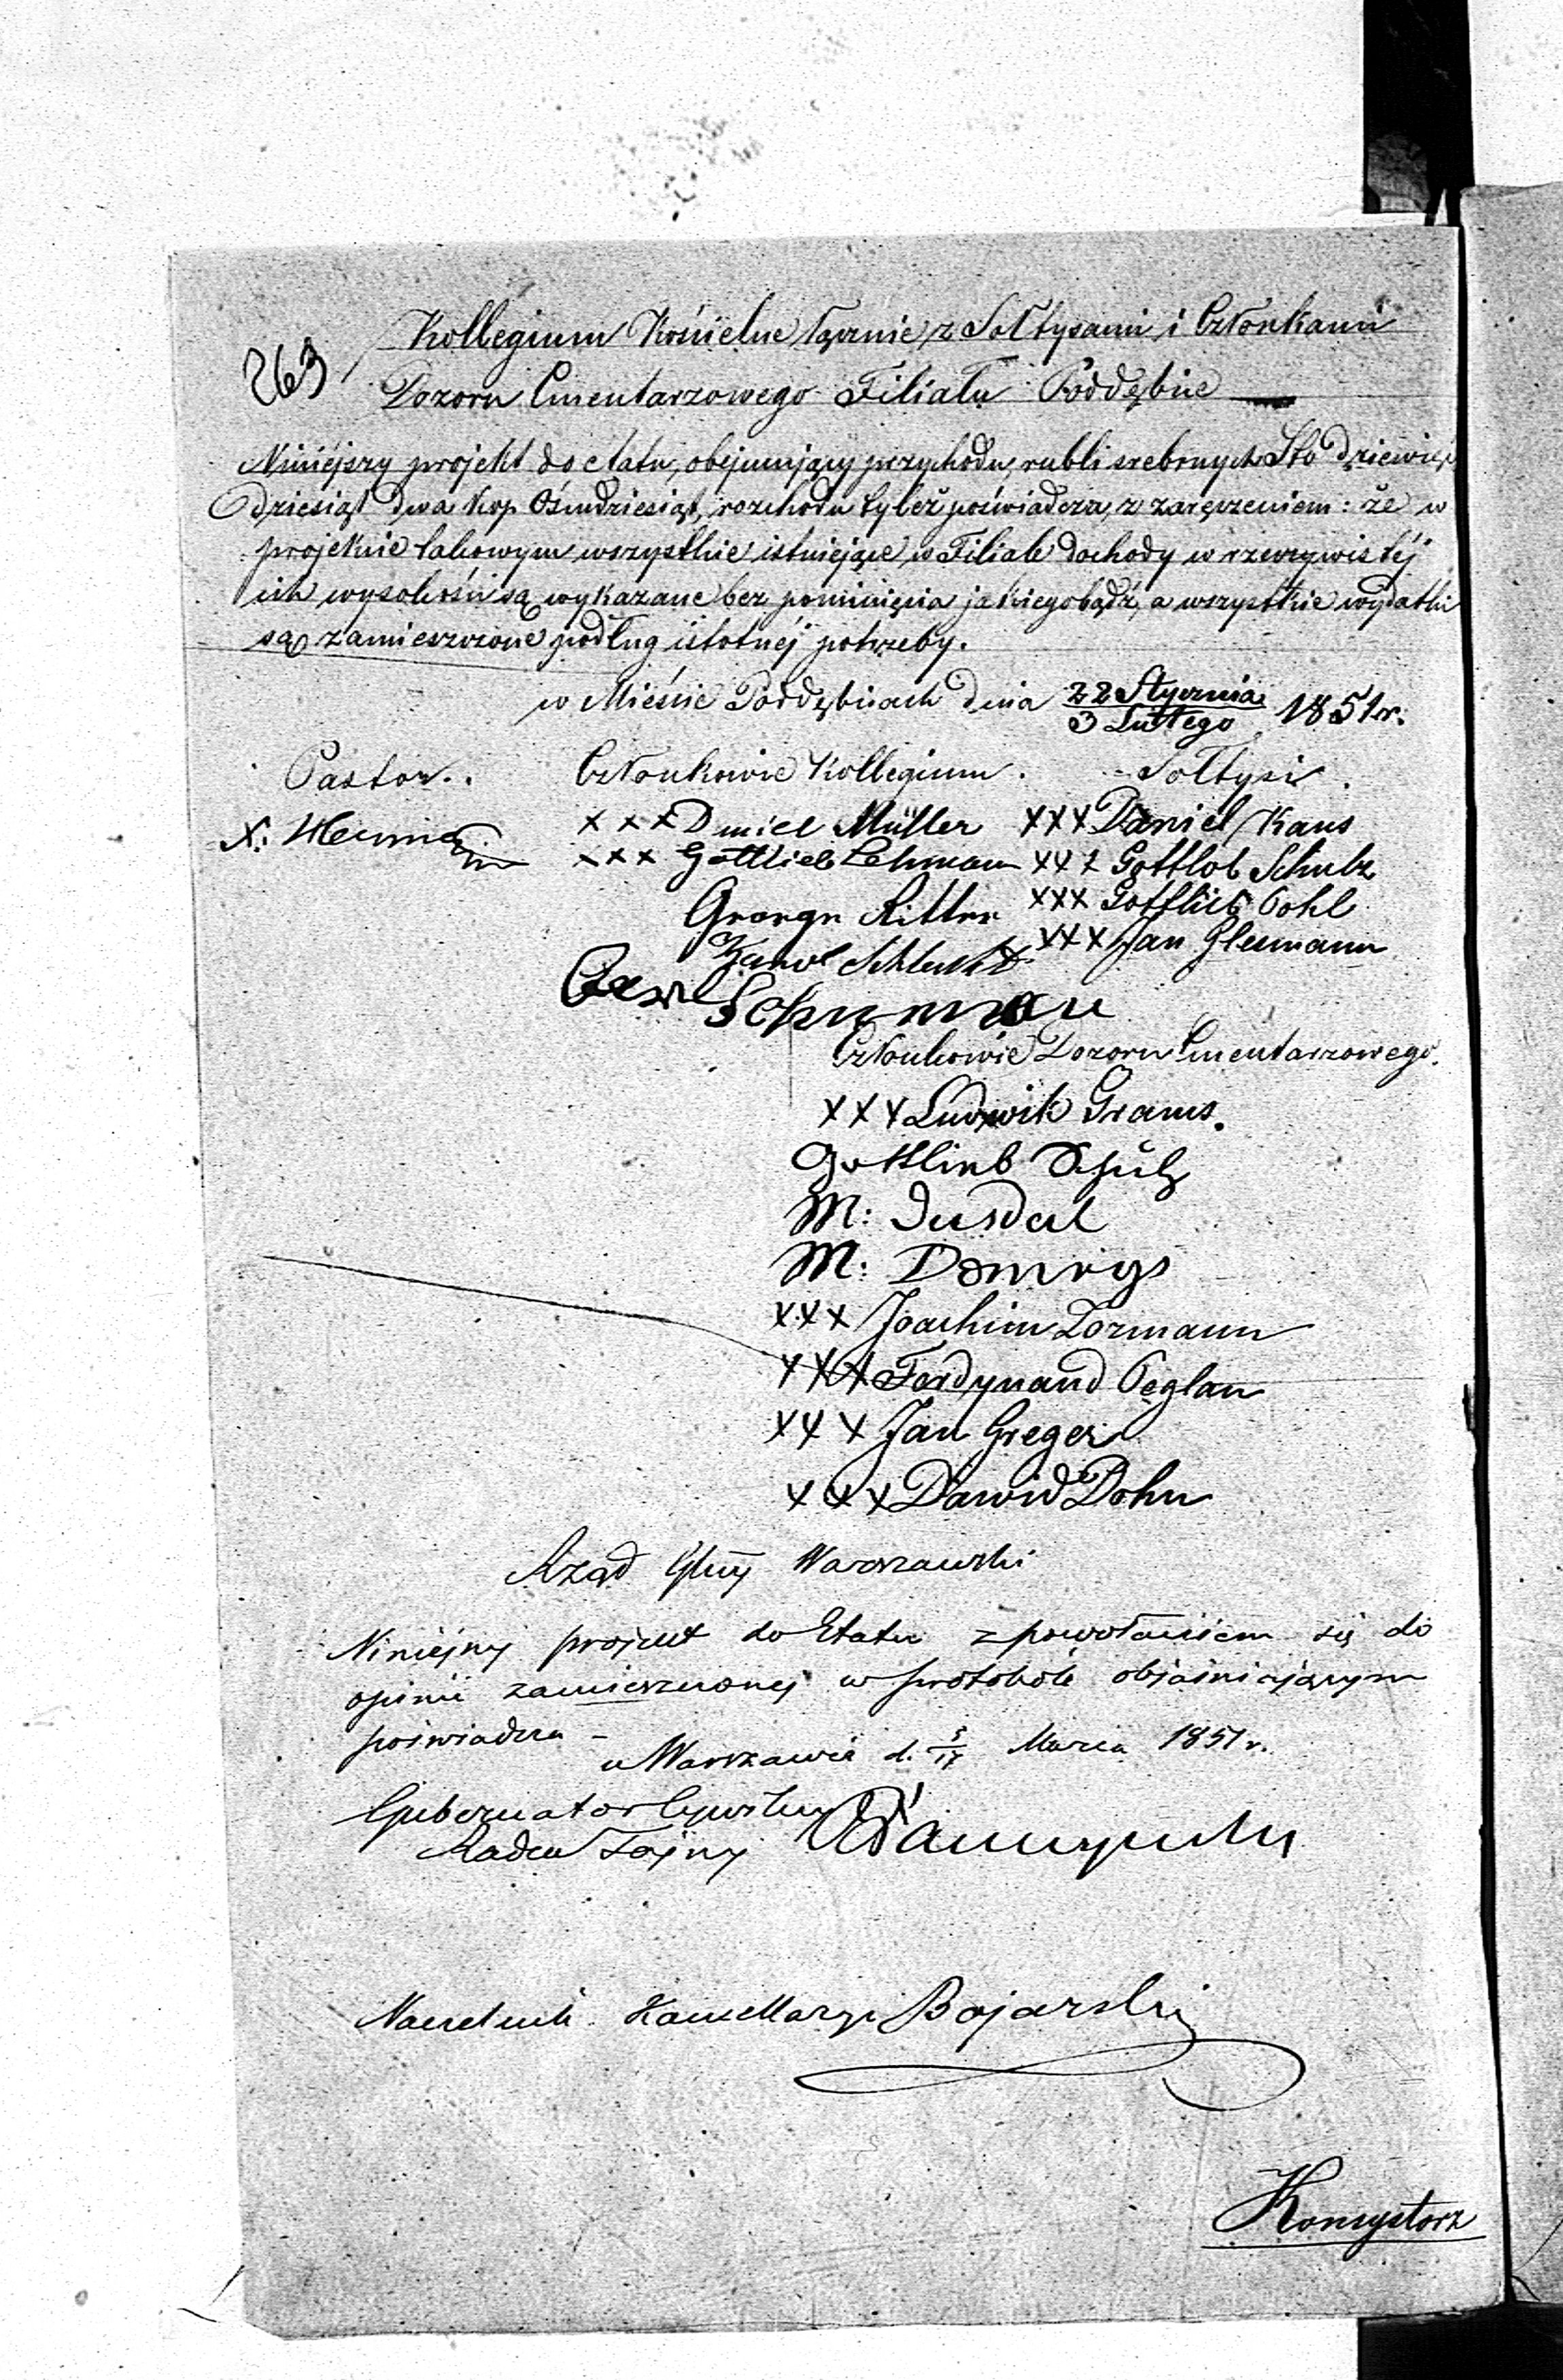 Kollegium Kościelne łącznie z Sołtysami i Członkami
263
Dozoru Cmentarzowego Filiału Poddębice
Niniejszy projekt do etatu, obejmujący przychodu rubli srebrnych Sto dziewięć
dziesiąt dwa kop. Ośmdziesiąt, rozchodu tyleż poświadcza, z zaręczeniem: że w
projekcie takowym wszystkie istniejące w Filiale dochody w rzeczywistéj
ich wysokości są wykazane bez pominięcia jakiegobądź, a wszystkie wydatki
są zamieszczone podług istotnéj potrzeby.
w Mieście Poddębicach dnia 22 Stycznia / 3 Lutego 1851 r.
Pastor. Członkowie Kollegium. Sołtysi.
X.
xxx Daniel Müller xxx Daniel Kaus
xxx Gottlieb Lehmann xxx Gottlob Schulz
George Ritter xxx Gottlieb Pohl
Karol Schlucht xxx Jan Glesmann
Schuman
Członkowie Dozoru Cmentarzowego.
xxx Ludwik Grams.
Gottlieb Schülz
M:
M: Domrys
xxx Joachim Zormann
xxx Ferdynand Peglau
xxx Jan Greger
xxx Dawid Dohn
Rząd Gbny Warszawski
Niniejszy projekt do Etatu z powołaniem się do
opinii zamieszczonej w protokole objaśniającym
poświadcza –
w Warszawie d. 5/17 Marca 1851 r.
Gubernator Cywilny
Radca Tajny
Naczelnik Kancellaryi Bojarski
Konsystorz